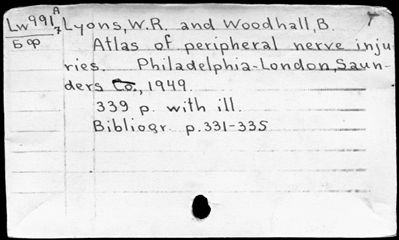 Lw991 A7 Lyons, W.R. and Woodhall, B. T
БФ Atlas of peripheral nerve inju
ries. Philadelphia-London, Saun-
ders Co., 1949.
339 p. with ill.
Bibliogr. p.331-335